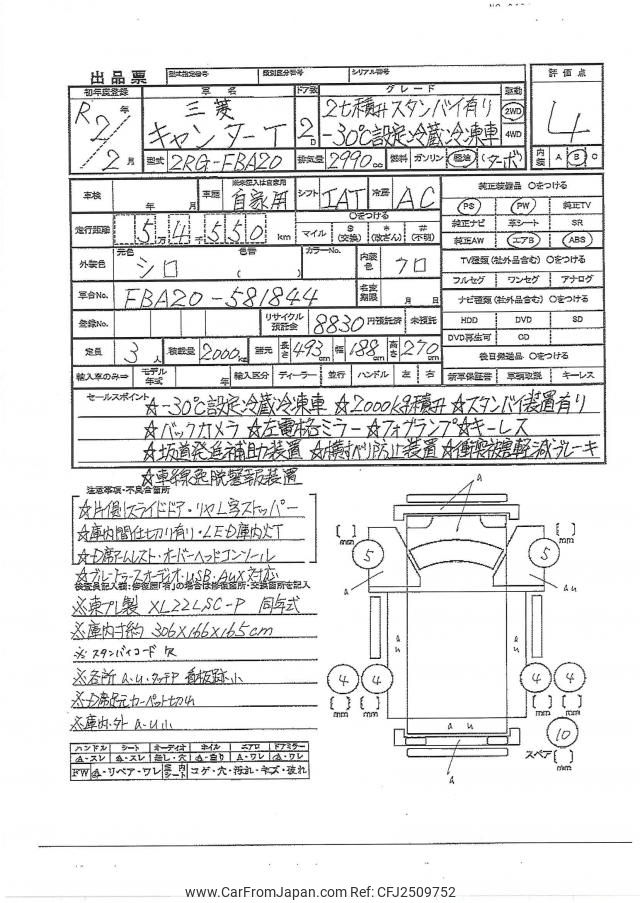 出品票 型式指定番号 類別区分番号 シリアル番号
初年度登録 車名 ドア数 グレード 駆動 評価点
R2年 三菱 2t積み スタンバイ有り 2WD
2月 キャンターT 2D -30℃設定冷蔵冷凍車 4WD 4
型式 2RG-FBA20 排気量 2990cc 燃料 ガソリン・軽油(ターボ) 内装 A B C
車検 年 月 車歴 ※未記入は自家用 自家用 シフト IAT 冷房 AC
純正装備品 ○をつける
PS PW 純正TV
走行距離 5万4千550km ○をつける マイル $(交換) *(改ざん) #(不明)
純正ナビ 革シート SR
純正AW エアB ABS
外装色 元色 シロ 色替( ) カラーNo. 内装色 クロ
TV種類(社外品含む) ○をつける
フルセグ ワンセグ アナログ
車台No. FBA20-581844 名変期限 月 日
ナビ種類(社外品含む) ○をつける
登録No. リサイクル預託金 8830円預託済 未預託
HDD DVD SD
DVD再生可 CD
定員 3人 積載量 2000kg 諸元 長さ 493cm 幅 188cm 高さ 270cm
後日発送品 ○をつける
輸入車のみ⇒ モデル年式 年 輸入区分 ディーラー 並行 ハンドル 左 右
新車保証書 車輌取説 キーレス
セールスポイント ☆-30℃設定冷蔵冷凍車 ☆2000kg積み ☆スタンバイ装置有り
☆バックカメラ ☆左電格ミラー ☆フォグランプ ☆キーレス
☆坂道発進補助装置 ☆横すべり防止装置 ☆衝突被害軽減ブレーキ
☆車線逸脱警報装置
注意事項・不具合箇所
☆片側スライドドア・リヤL字ストッパー
☆庫内間仕切り有り・LED庫内灯
☆D席アームレスト・オーバーヘッドコンソール
☆ブルートゥースオーディオ・USB・AUX対応
検査員記入欄:修復歴「有」の場合は修復箇所・交換箇所を記入
※東プレ製 XL22LSC-P 同年式
※庫内寸約 306×166×165cm
※スタンバイコード欠
※各所 a.u.タッチP 看板跡小
※D席足元カーペット切小
※庫内・外 a.u小
[ ] mm 5 a 5 [ ] mm
a a
a u a u
4 4 4 4
[ ] mm [ ] mm [ ] mm [ ] mm
a u
10 スペア [ ] mm
a
ハンドル シート オーディオ ホイル エアロ ドアミラー
スレ スレ 無し・穴 曲り ワレ ワレ
FW リペア・ワレ 室内シート コゲ・穴・汚れ・キズ・破れ
www.CarFromJapan.com Ref: CFJ2509752